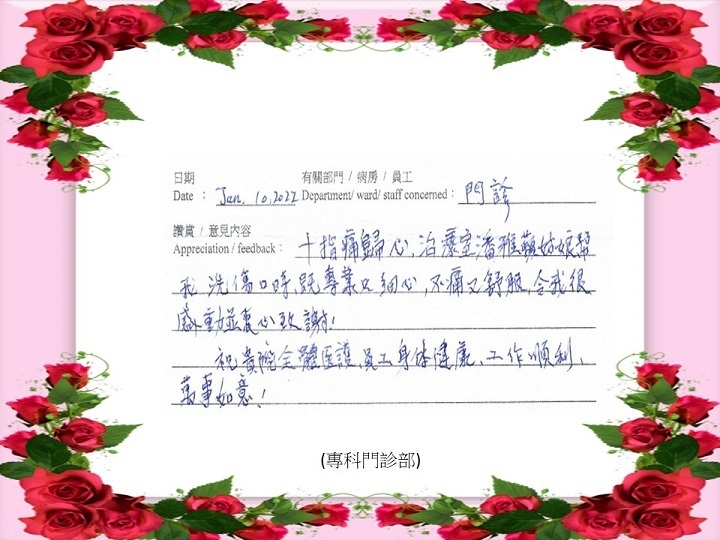 日期 有關部門 / 病房 / 員工
Date : Jan. 10, 2022 Department/ ward/ staff concerned : 門診
讚賞 / 意見內容
Appreciation / feedback : 十指痛歸心,治療室潘雅蘋姑娘幫
我洗傷口時,既專業又細心,不痛又舒服,令我很
感動並衷心致謝!
祝貴院全體医護、員工身体健康、工作順利、
萬事如意!
(專科門診部)